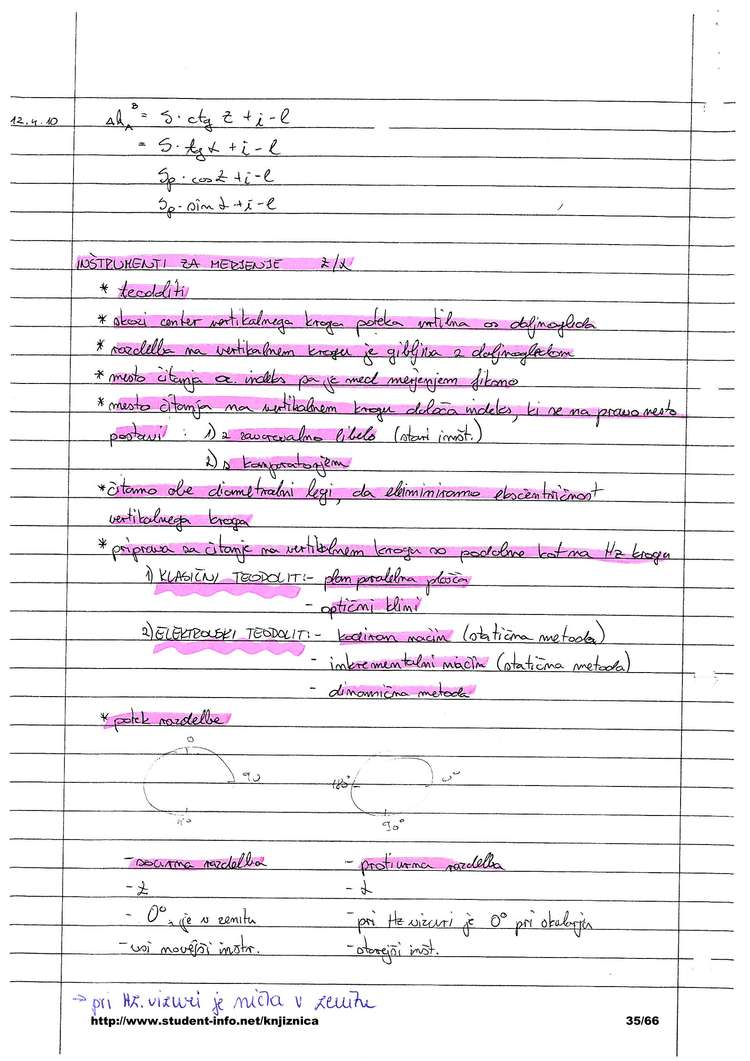 12.4.10 Δh_A^B = S · ctg z + i - l
= S · tg α + i - l
Sp · cos z + i - l
Sp · sin α + i - l
INŠTRUMENTI ZA MERJENJE z/α
* teodoliti
* skozi center vertikalnega kroga poteka vrtilna os daljnogleda
* razdelba na vertikalnem krogu je gibljiva z daljnogledom
* mesto čitanja oz. indeks pa je med merjenjem fiksno
* mesto čitanja na vertikalnem krogu določa indeks, ki se na pravo mesto
postavi : 1) z zavarovalno libelo (stari inšt.)
2) s kompenzatorjem
* čitamo obe diametralni legi, da eliminiramo ekscentričnost
vertikalnega kroga
* priprava za čitanje na vertikalnem krogu so podobne kot na Hz krogu
1) KLASIČNI TEODOLIT: - plan paralelna plošča
- optični klini
2) ELEKTRONSKI TEODOLIT: - kodiran način (statična metoda)
- inkrementalni način (statična metoda)
- dinamična metoda
* potek razdelbe
0
90 180° 0°
90°
- sourna razdelba - protiurna razdelba
- z - α
- 0° je v zenitu - pri Hz vizuri je 0° pri okularju
- vsi novejši instr. - starejši inst.
→ pri Hz. vizuri je ničla v zenitu
http://www.student-info.net/knjiznica 35/66